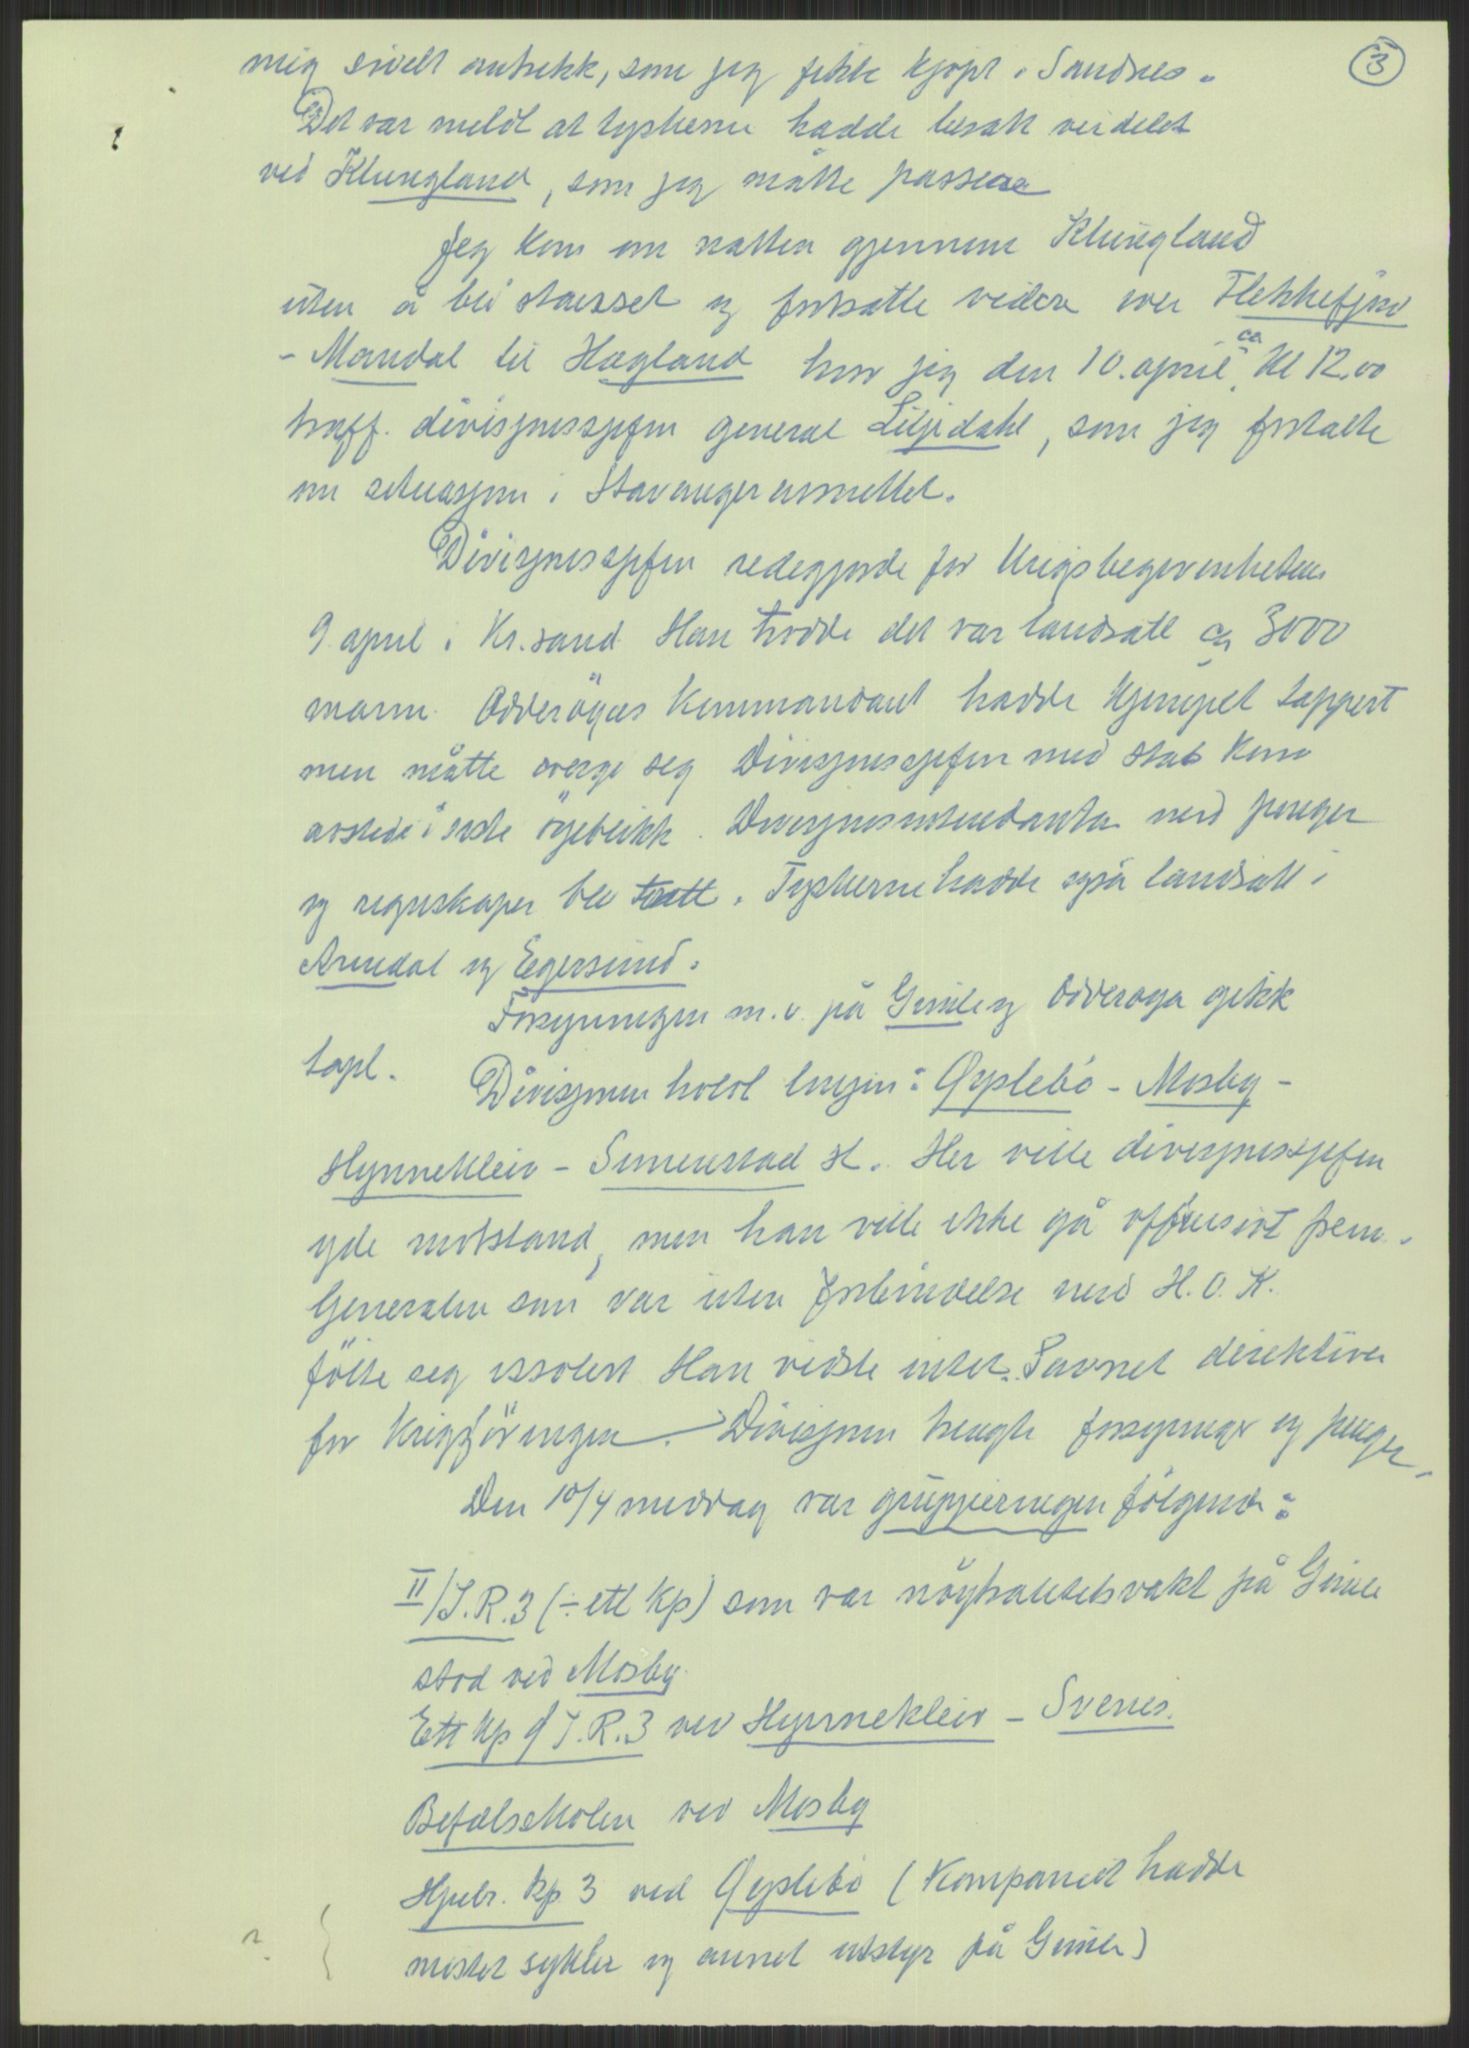 3
mig sivelt antrekk, som jeg fikk kjøpt i Sandnes.
Det var meldt at tyskerne hadde besatt veidelet
ved Klungland, som jeg måtte passere
Jeg kom om natten gjennem Klungland
uten å bli stanset og fortsatte videre over Flekkefjord
- Mandal til Hægland hvor jeg den 10. april ca kl 12.00
traff divisjonssjefen general Liljedahl, som jeg fortalte
om situasjonen i Stavangeravsnittet.
Divisjonssjefen redegjorde for krigsbegivenhetene
9 april i Kr.sand Han trodde det var landsatt ca 3000
mann. Odderöyas kommandant hadde kjempet tappert
men måtte overgi seg Divisjonssjefen med stab kom
avsted i siste öyeblikk. Divisjonsintendanten med penger
og regnskaper ble tatt. Tyskerne hadde også landsatt i
Arendal og Egersund.
Forsyningen m.v. på Gimle og Odderøya gikk
tapt.
Divisjonen holdt linjen: Øyslebö - Mosby -
Hynnekleiv - Simenstad st. Her ville divisjonssjefen
yde motstand, men han ville ikke gå offensivt frem.
Generalen som var uten forbindelse med H.O.K.
fölte seg issolert Han visste intet. Savnet direktiver
for krigföringen. Divisjonen trengte forsyninger og penger.
Den 10/4 middag var grupperingen fölgende:
II/I.R.3 (÷ ett kp) som var nöytralitetsvakt på Gimle
stod ved Mosby
Ett kp af I.R.3 ved Hynnekleiv - Svenes.
Befalsskolen ved Mosby
Hjulr. kp 3 ved Øyslebö (Kompaniet hadde
mistet sykler og annet utstyr på Gimle)
?